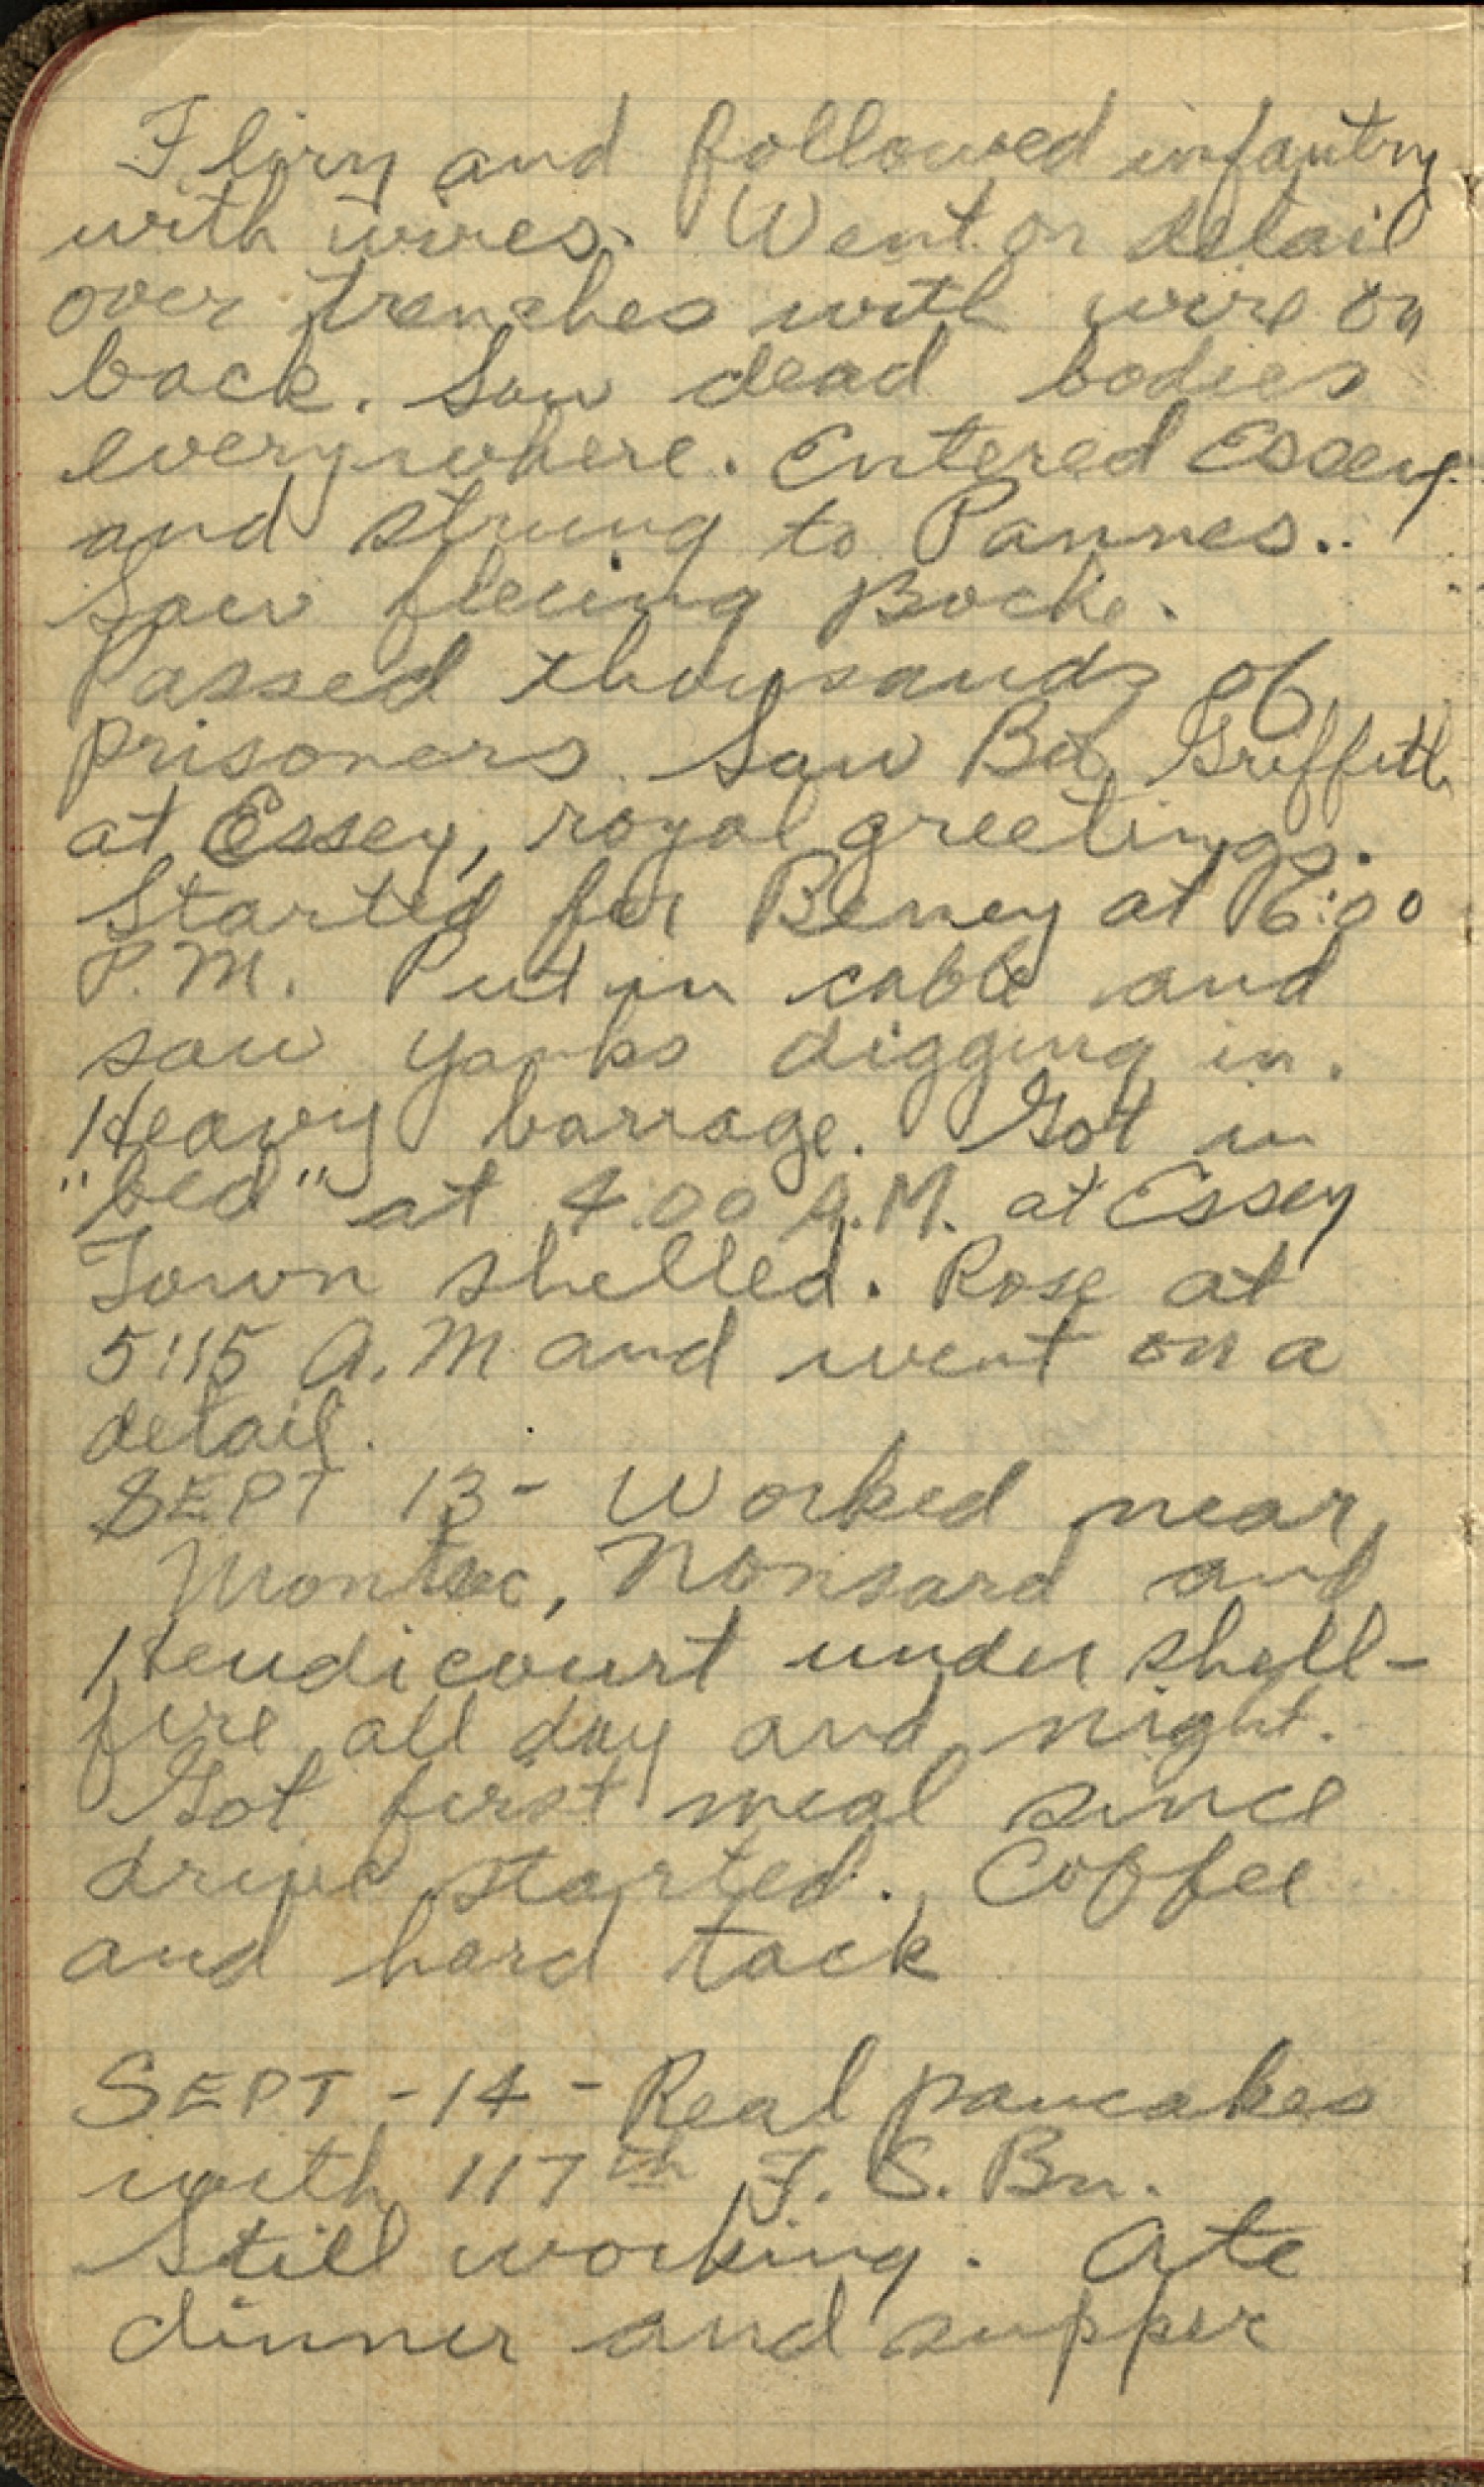 Flirry and followed infantry
with wires. Went on detail
over trenches with wire on
back. Saw dead bodies
everywhere. Entered Essey
and strung to Pannes..
Saw fleeing Boche.
Passed thousands of
prisoners. Saw Bob Griffith
at Essey, royal greetings.
Started for Beney at 6:00
P.M. Put in cable and
saw Yanks digging in.
Heavy barrage. Got in
"bed" at 4:00 A.M. at Essey
Town shelled. Rose at
5:15 A.M and went on a
detail.
SEPT 13 - Worked near
Montsec, Nonsard and
Heudicourt under shell-
fire all day and night.
Got first meal since
drive started. Coffee
and hard tack
SEPT - 14 - Real pancakes
with 117th F. S. Bn.
Still working. Ate
dinner and supper